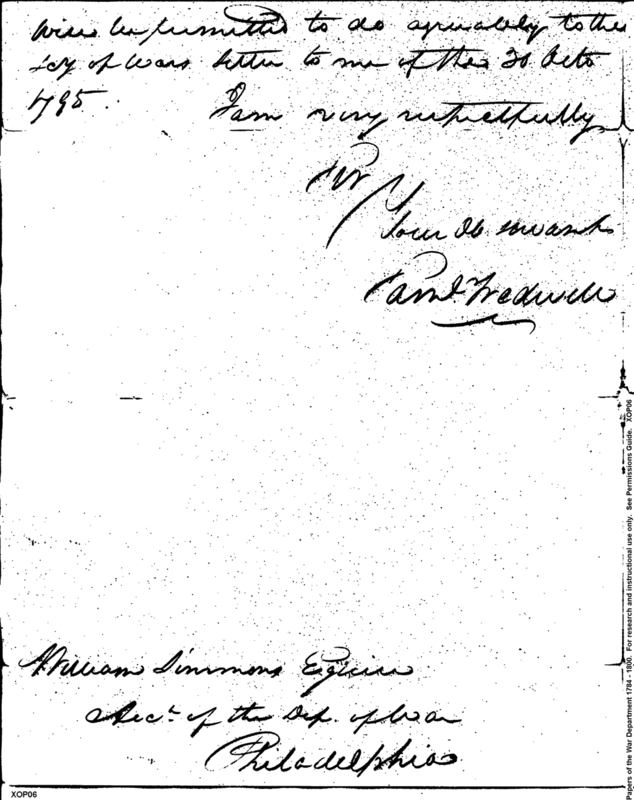 will be permitted to do agreeably to the
Secy of Wars letter to me of the 30 Octo
1795.
I am very respectfully
Sir
Your Ob servant
Saml Tredwell
William Simmons Esquire
Acct. of the Dep. of War
Philadelphia
XOP06
Papers of the War Department 1784 - 1800. For research and instructional use only. See Permissions Guide. XOP06